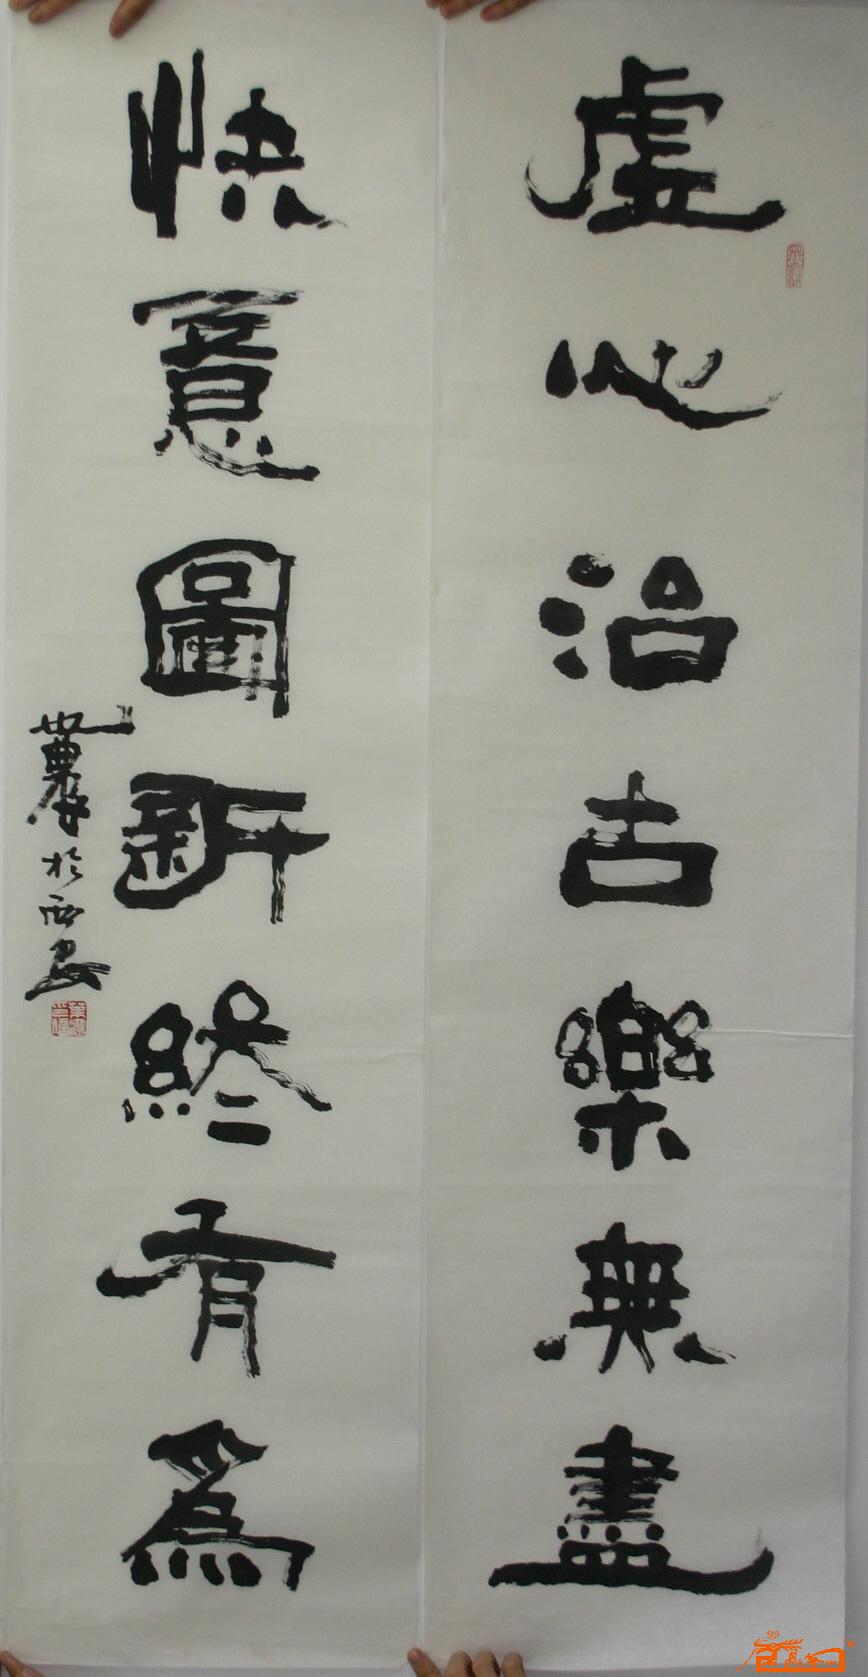 虛心治古樂無盡
快意圖新終有爲
世農於西安